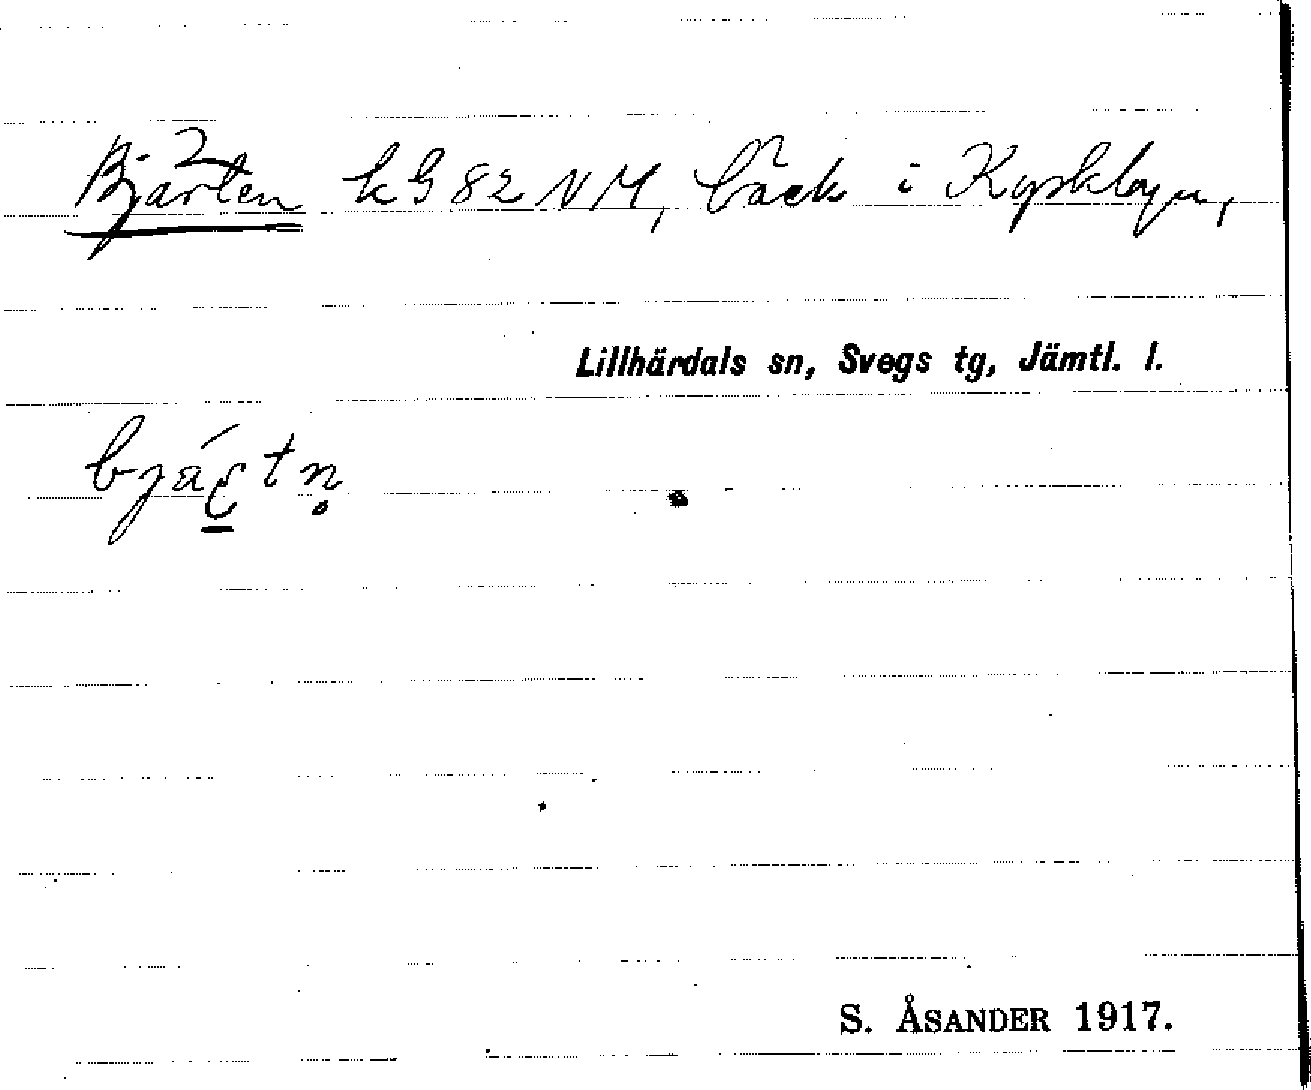 Bjärten kG82NM, bäck i Kyrkbyn,
Lillhärdals sn, Svegs tg, Jämtl. l.
S. ÅSANDER 1917.